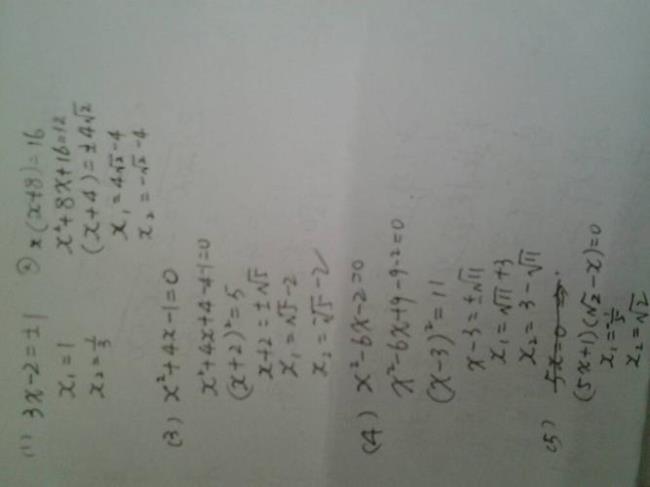 (1) 3x-2=±1
x₁=1
x₂=1/3
② x(x+8)=16
x²+8x+16=12
(x+4)=±4√2
x₁=4√2-4
x₂=-√2-4
(3) x²+4x-1=0
x²+4x+4-4-1=0
(x+2)²=5
x+2=±√5
x₁=√5-2
x₂=-√5-2
(4) x²-6x-2=0
x²-6x+9-9-2=0
(x-3)²=11
x-3=±√11
x₁=√11+3
x₂=3-√11
(5)
(5x+1)(√2-x)=0
x₁=-1/5
x₂=√2